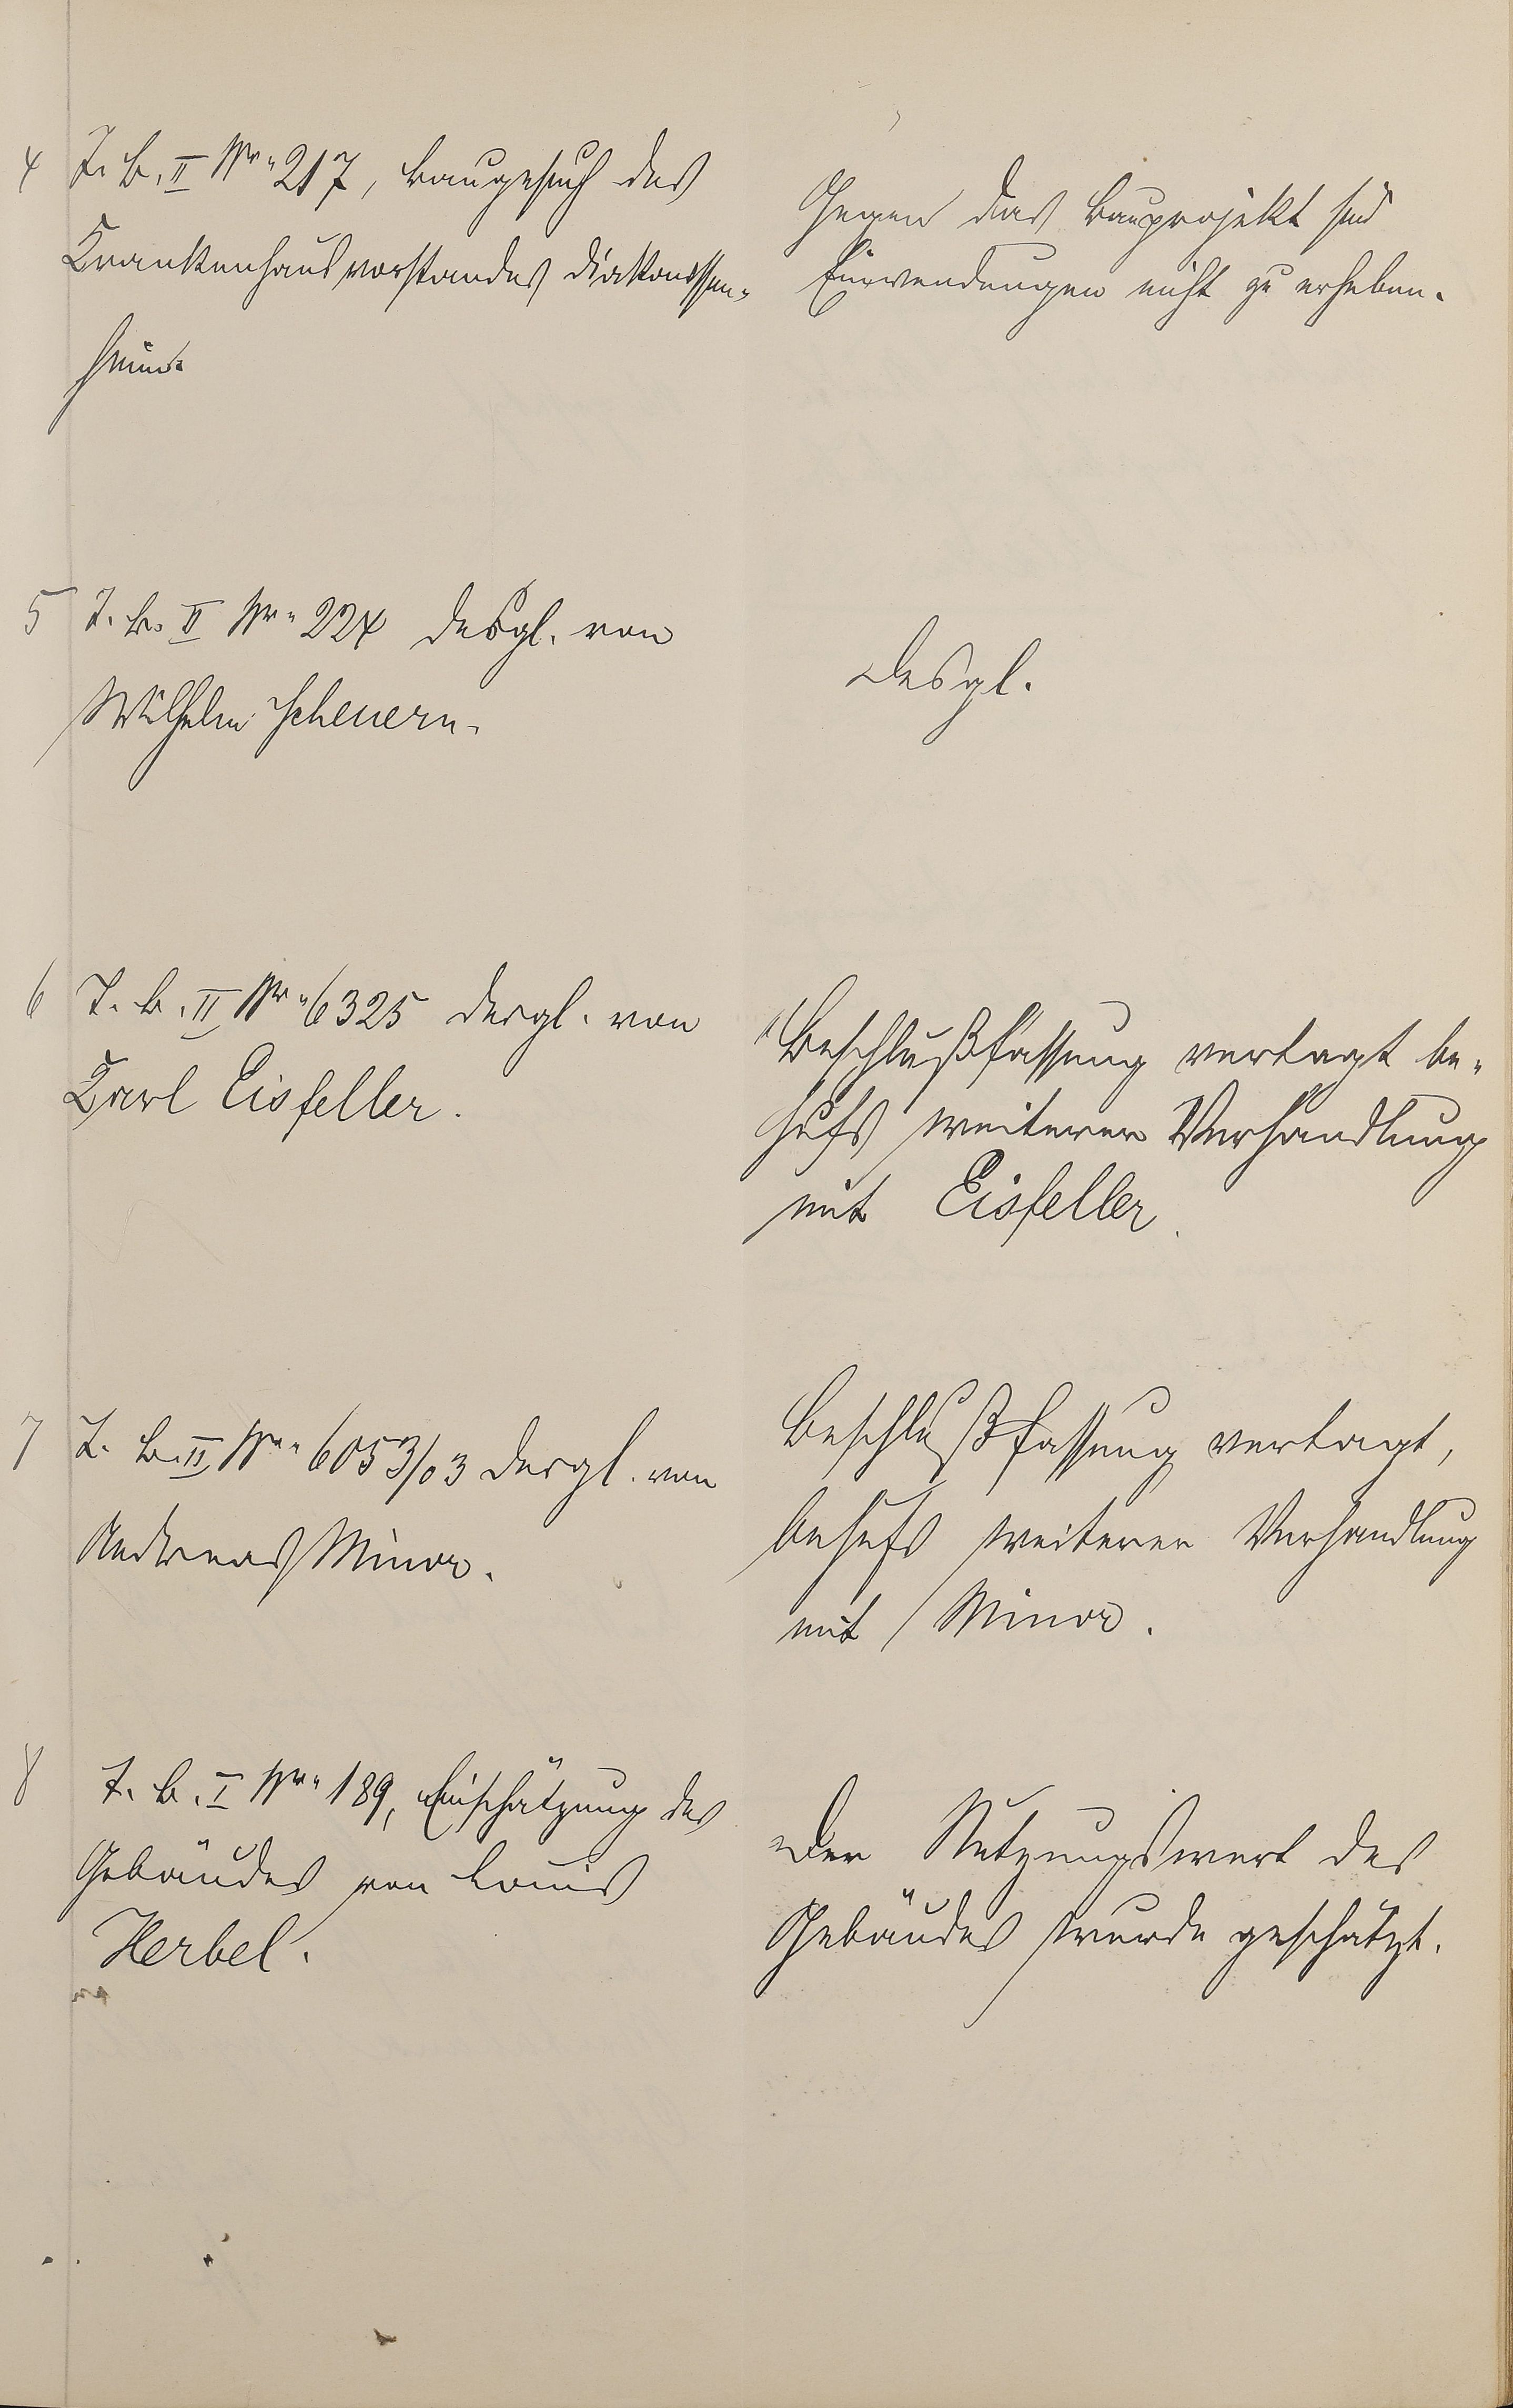 4 J. B. II Nr. 217, Baugesuch des
Krankenhausvorstandes Diakonissen-
heim.
Gegen das Bauprojekt sind
Einwendungen nicht zu erheben.
5 J. B. II Nr. 224 desgl. von
Wilhelm Scheuern.
desgl.
6 J. B. II Nr. 6325 desgl. von
Karl Eisfeller.
Beschlußfassung vertagt be-
hufs weiterer Verhandlung
mit Eisfeller.
7 J. B. II Nr. 6053/03 desgl. von
Andreas Minor.
Beschlußfassung vertagt,
behufs weiterer Verhandlung
mit Minor.
8 J. B. I Nr. 189, Einschätzung des
Gebäudes von Louis
Herbel.
Der Nutzungswert des
Gebäudes wurde geschätzt.